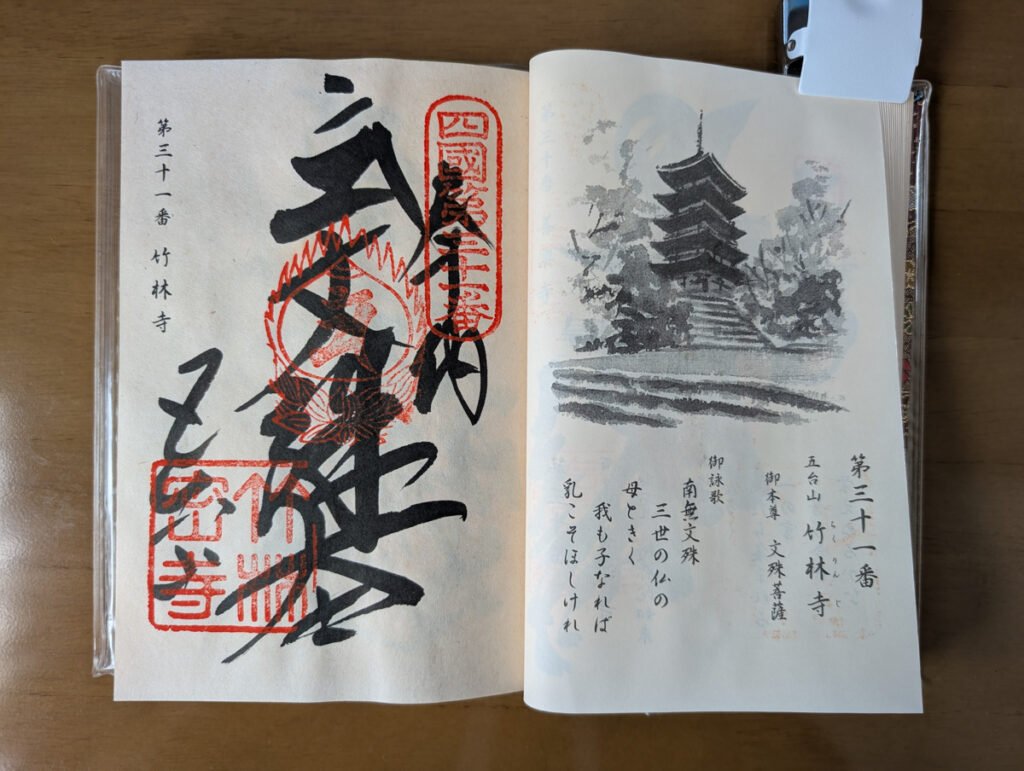 第三十一番
五台山 竹林寺
ちくりんじ
御本尊 文殊菩薩
御詠歌
南無文殊
三世の仏の
母ときく
我も子なれば
乳こそほしけれ
四國第三十一番
奉納
竹林
密寺
第三十一番 竹林寺